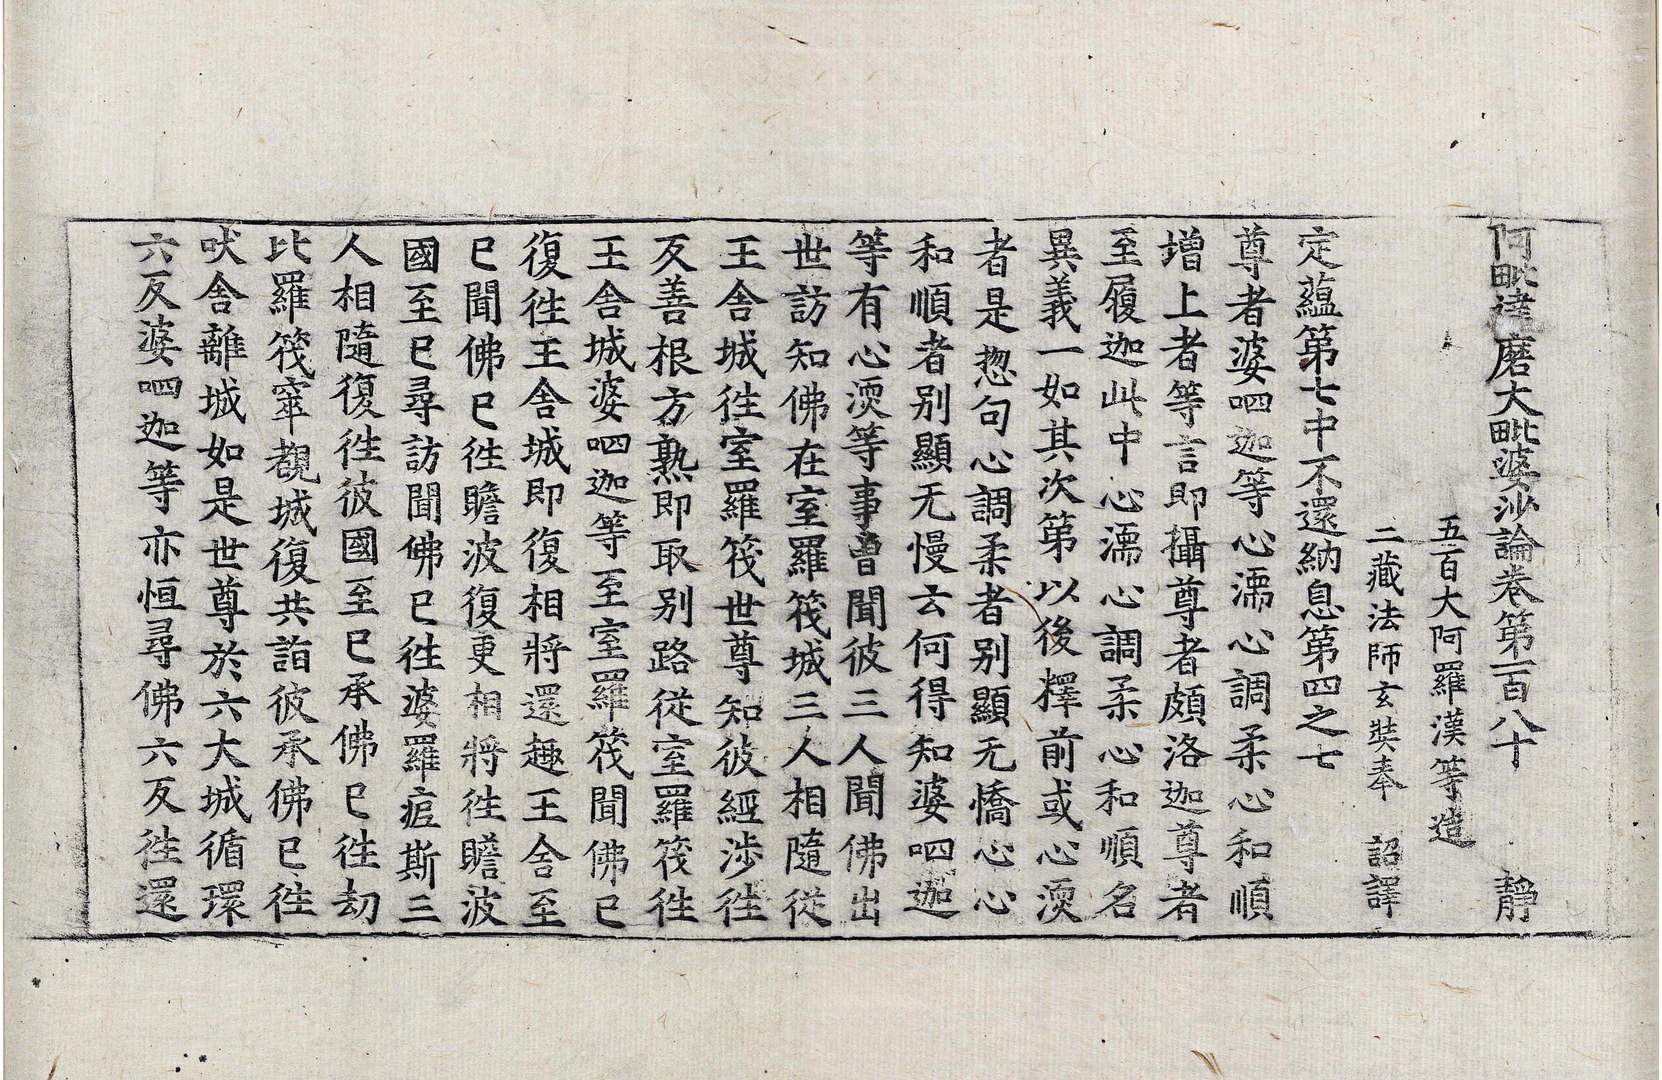 阿毗達磨大毗婆沙論卷第一百八十　靜
五百大阿羅漢等造
三藏法師玄奘奉　詔譯
定蘊第七中不還納息第四之七
尊者婆呬迦等心濡心調柔心和順
增上者等言即攝尊者頗洛迦尊者
至履迦此中心濡心調柔心和順名
異義一如其次第以後釋前或心渜
者是惣句心調柔者別顯无憍心心
和順者別顯无慢云何得知婆呬迦
等有心渜等事曾聞彼三人聞佛出
世訪知佛在室羅筏城三人相隨從
王舍城徃室羅筏世尊知彼經涉徃
反善根方熟即取別路從室羅筏徃
王舍城婆呬迦等至室羅筏聞佛已
復徃王舍城即復相將還趣王舍至
已聞佛已徃瞻波復更相將徃瞻波
國至已尋訪聞佛已徃婆羅痆斯三
人相隨復徃彼國至已承佛已徃劫
比羅筏窣覩城復共詣彼承佛已徃
吠舍離城如是世尊於六大城循環
六反婆呬迦等亦恒尋佛六反徃還